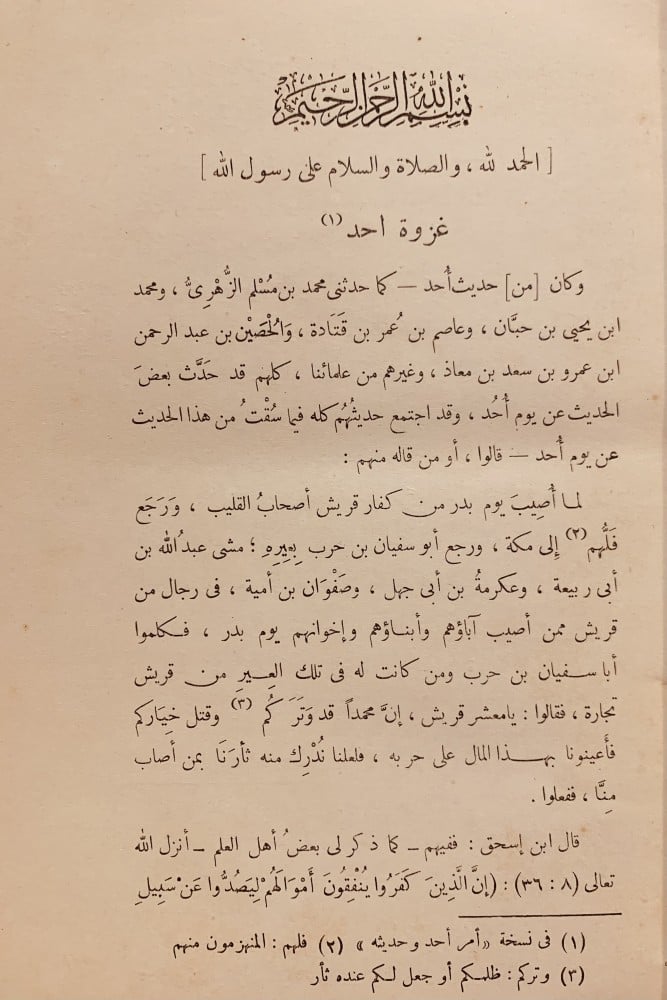 بسم الله الرحمن الرحيم
[ الحمد لله ، والصلاة والسلام على رسول الله ]
غزوة احد (١)
وكان [من] حديث أُحد — كما حدثنى محمد بن مُسْلم الزُّهْرِىُّ ، ومحمد
ابن يحيى بن حبَّان ، وعاصم بن عُمر بن قَتَادة ، وَالْحصَيْن بن عبد الرحمن
ابن عمرو بن سعد بن معاذ ، وغيرهم من علمائنا ، كلهم قد حَدَّث بعضَ
الحديث عن يوم أُحُد ، وقد اجتمع حديثُهُم كله فيما سُقْتُ من هذا الحديث
عن يوم أُحد — قالوا ، أو من قاله منهم :
لما أُصِيبَ يوم بدر من كفار قريش أصحابُ القليب ، وَرَجَع
فَلُّهم (٢) إلى مكة ، ورجع أبو سفيان بن حرب بِعِيرِهِ ؛ مشى عبدُ الله بن
أبى ربيعة ، وعكرمةُ بن أبى جهل ، وصَفْوَان بن أمية ، فى رجال من
قريش ممن أصيب آباؤهم وأبناؤهم وإخوانهم يوم بدر ، فكلموا
أبا سفيان بن حرب ومن كانت له فى تلك العِيرِ من قريش
تجارة ، فقالوا : يامعشر قريش ، إنَّ محمداً قد وَتَرَكُم (٣) وقتل خِيَاركم
فأَعينونا بهذا المال على حربه ، فلعلنا نُدْرِك منه ثأرَنَا بمن أصاب
مِنَّا ، ففعلوا .
قال ابن إسحق : ففيهم — كما ذكر لى بعضُ أهل العلم — أنزل الله
تعالى (٨ : ٣٦) : (إنَّ الَّذِينَ كَفَرُوا يُنْفِقُونَ أَمْوَالَهُمْ لِيَصُدُّوا عَنْ سَبِيلِ
(١) فى نسخة «أمر أحد وحديثه» (٢) فلهم : المنهزمون منهم
(٣) وتركم : ظلمكم أو جعل لكم عنده ثأر